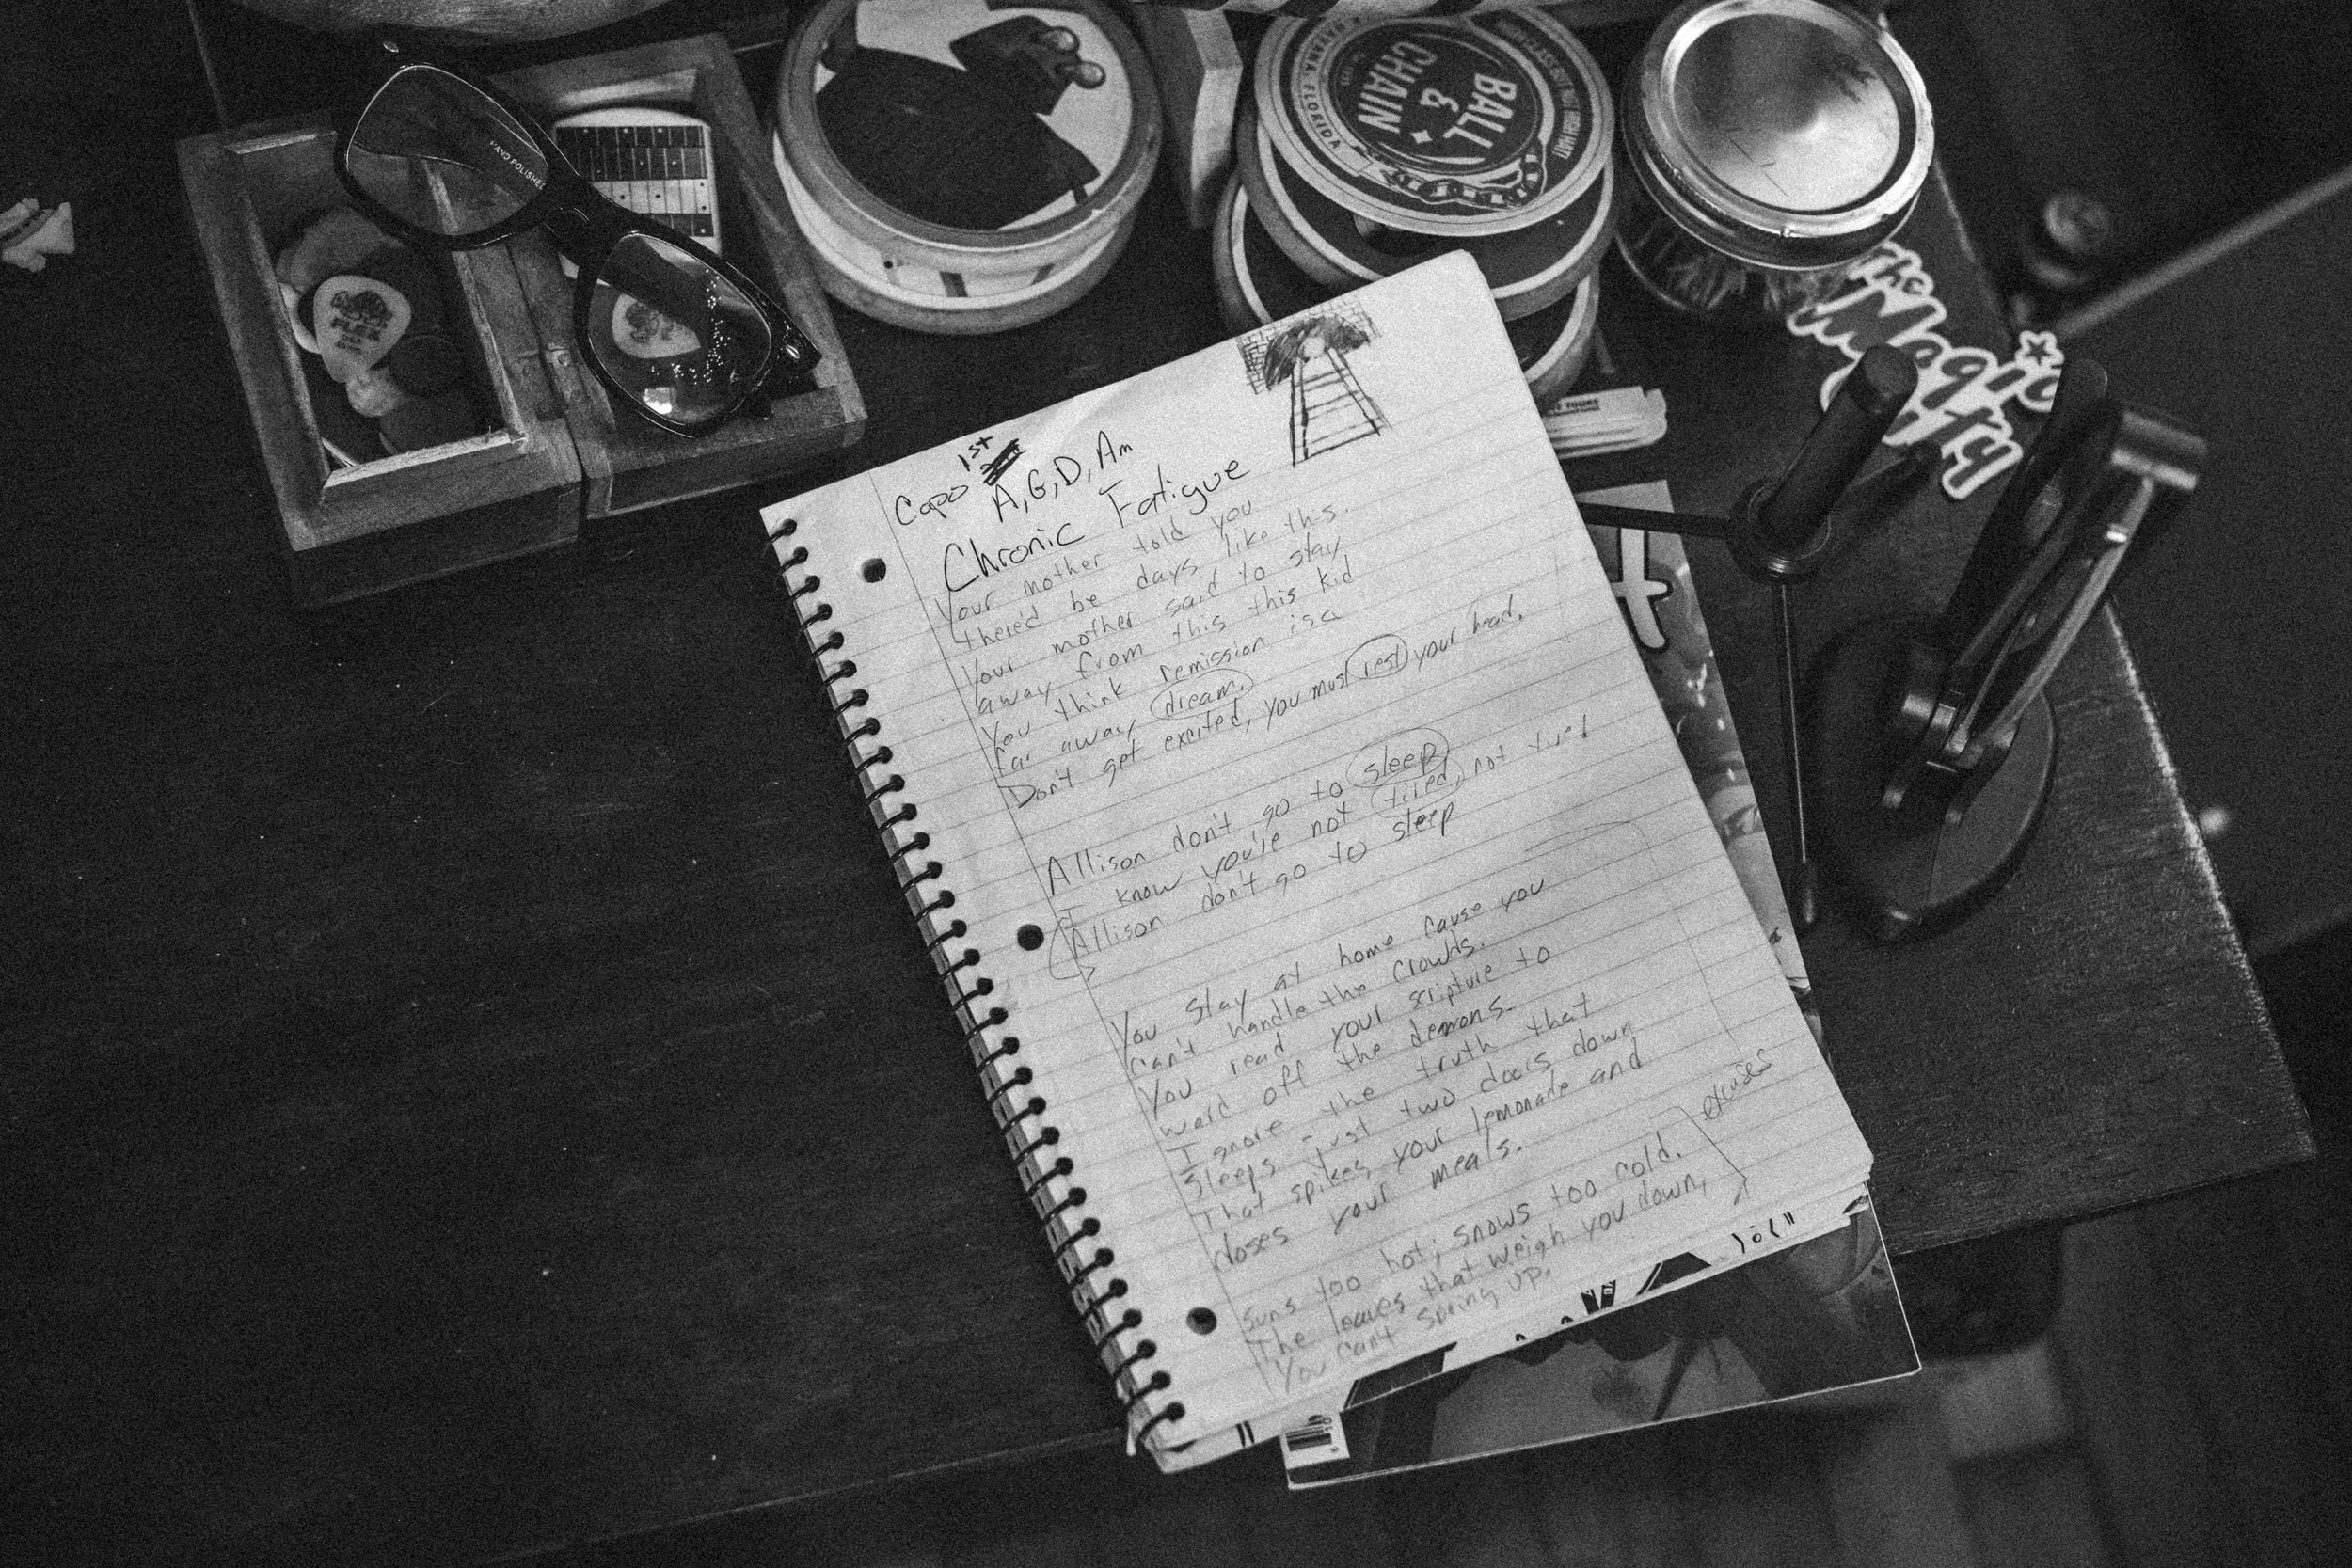 HAND POLISHED
FLEX
BALL
&
CHAIN
HAVANA, FLORIDA
the
Magic
City
Capo 1st
A, G, D, Am
Chronic Fatigue
Your mother told you
there'd be days like this.
Your mother said to stay
away from this this kid
You think remission is a
far away dream.
Don't get excited, you must rest your head.
Allison don't go to sleep
I know you're not tired, not tired
Allison don't go to sleep
You stay at home cause you
can't handle the crowds.
You read your scripture to
ward off the demons.
I gnore the truth that
Sleeps just two doors down
That spikes your lemonade and
doses your meals.
excuses
Suns too hot; snows too cold.
The leaves that weigh you down,
You can't spring up.